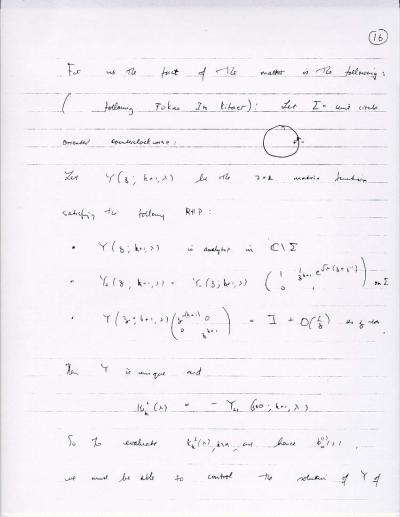 16
For us the fact of the matter is the following:
( following Fokas Its Kitaev): Let Σ = unit circle
oriented counterclockwise:
Let Y(z; k+1, λ) be the 2×2 matrix function
satisfying the following RHP:
• Y(z; k+1, λ) is analytic in ℂ\Σ
• Y₊(z; k+1, λ) = Y₋(z; k+1, λ) ( 1 1/z^{k+1} e^{√λ(z+z⁻¹)} ; 0 1 ) on Σ
• Y(z; k+1, λ) ( z^{-(k+1)} 0 ; 0 z^{k+1} ) = I + O(1/z) as z→∞
Then Y is unique and
(λ) = - Y₂₁ (z=0; k+1, λ)
So to evaluate and hence
we must be able to control the solution of Y of